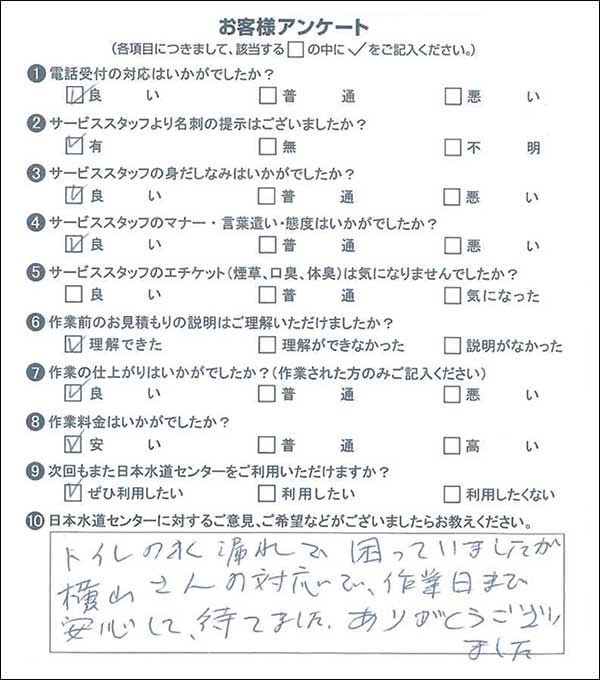 お客様アンケート
(各項目につきまして、該当する□の中に✓をご記入ください。)
❶電話受付の対応はいかがでしたか？
☑良い □普通 □悪い
❷サービススタッフより名刺の提示はございましたか？
☑有 □無 □不明
❸サービススタッフの身だしなみはいかがでしたか？
☑良い □普通 □悪い
❹サービススタッフのマナー・言葉遣い・態度はいかがでしたか？
☑良い □普通 □悪い
❺サービススタッフのエチケット(煙草、口臭、体臭)は気になりませんでしたか？
□良い □普通 □気になった
❻作業前のお見積もりの説明はご理解いただけましたか？
☑理解できた □理解ができなかった □説明がなかった
❼作業の仕上がりはいかがでしたか？(作業された方のみご記入ください)
☑良い □普通 □悪い
❽作業料金はいかがでしたか？
☑安い □普通 □高い
❾次回もまた日本水道センターをご利用いただけますか？
☑ぜひ利用したい □利用したい □利用したくない
❿日本水道センターに対するご意見、ご希望などがございましたらお教えください。
トイレの水漏れで困っていましたが
横山さんの対応で、作業日まで
安心して、待てました。ありがとうござい
ました